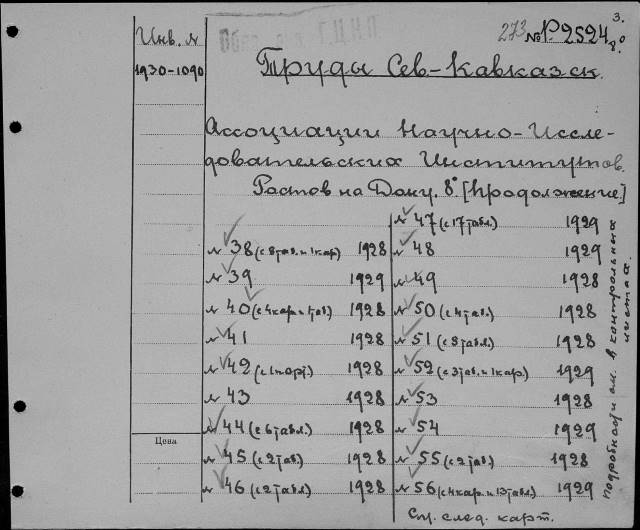 3.
273 № Р2524 8°
Инв. №
1930-1090
Труды Сев-Кавказск.
Ассоциации Научно-Иссле-
довательских Институтов.
Ростов на Дону. 8° [Продолжение]
№ 38 (с 8 таб. и 1 кар) 1928
№ 39 1929
№ 40 (с 4 кар. и 1 таб.) 1928
№ 41 1928
№ 42 (с 1 порт) 1928
№ 43 1928
№ 44 (с 6 табл.) 1928
№ 45 (с 2 таб.) 1928
№ 46 (с 2 табл.) 1928
№ 47 (с 17 табл.) 1929
№ 48 1929
№ 49 1928
№ 50 (с 4 табл.) 1928
№ 51 (с 8 табл.) 1928
№ 52 (с 3 таб. и 1 кар.) 1929
№ 53 1928
№ 54 1929
№ 55 (с 2 таб.) 1928
№ 56 (с 4 кар. и 13 табл.) 1929
См. след. карт.
Цена
подробности см. в контрольных
листах.